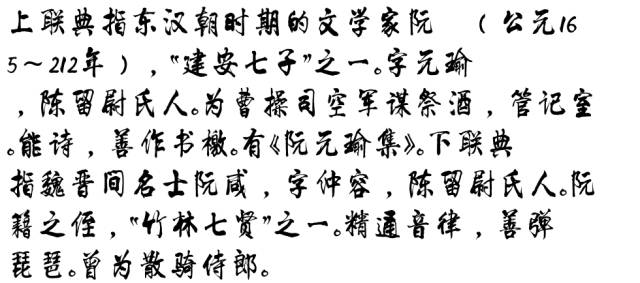 上联典指东汉朝时期的文学家阮 （公元16
5～212年），“建安七子”之一。字元瑜
，陈留尉氏人。为曹操司空军谋祭酒，管记室
。能诗，善作书檄。有《阮元瑜集》。下联典
指魏晋间名士阮咸，字仲容，陈留尉氏人。阮
籍之侄，“竹林七贤”之一。精通音律，善弹
琵琶。曾为散骑侍郎。